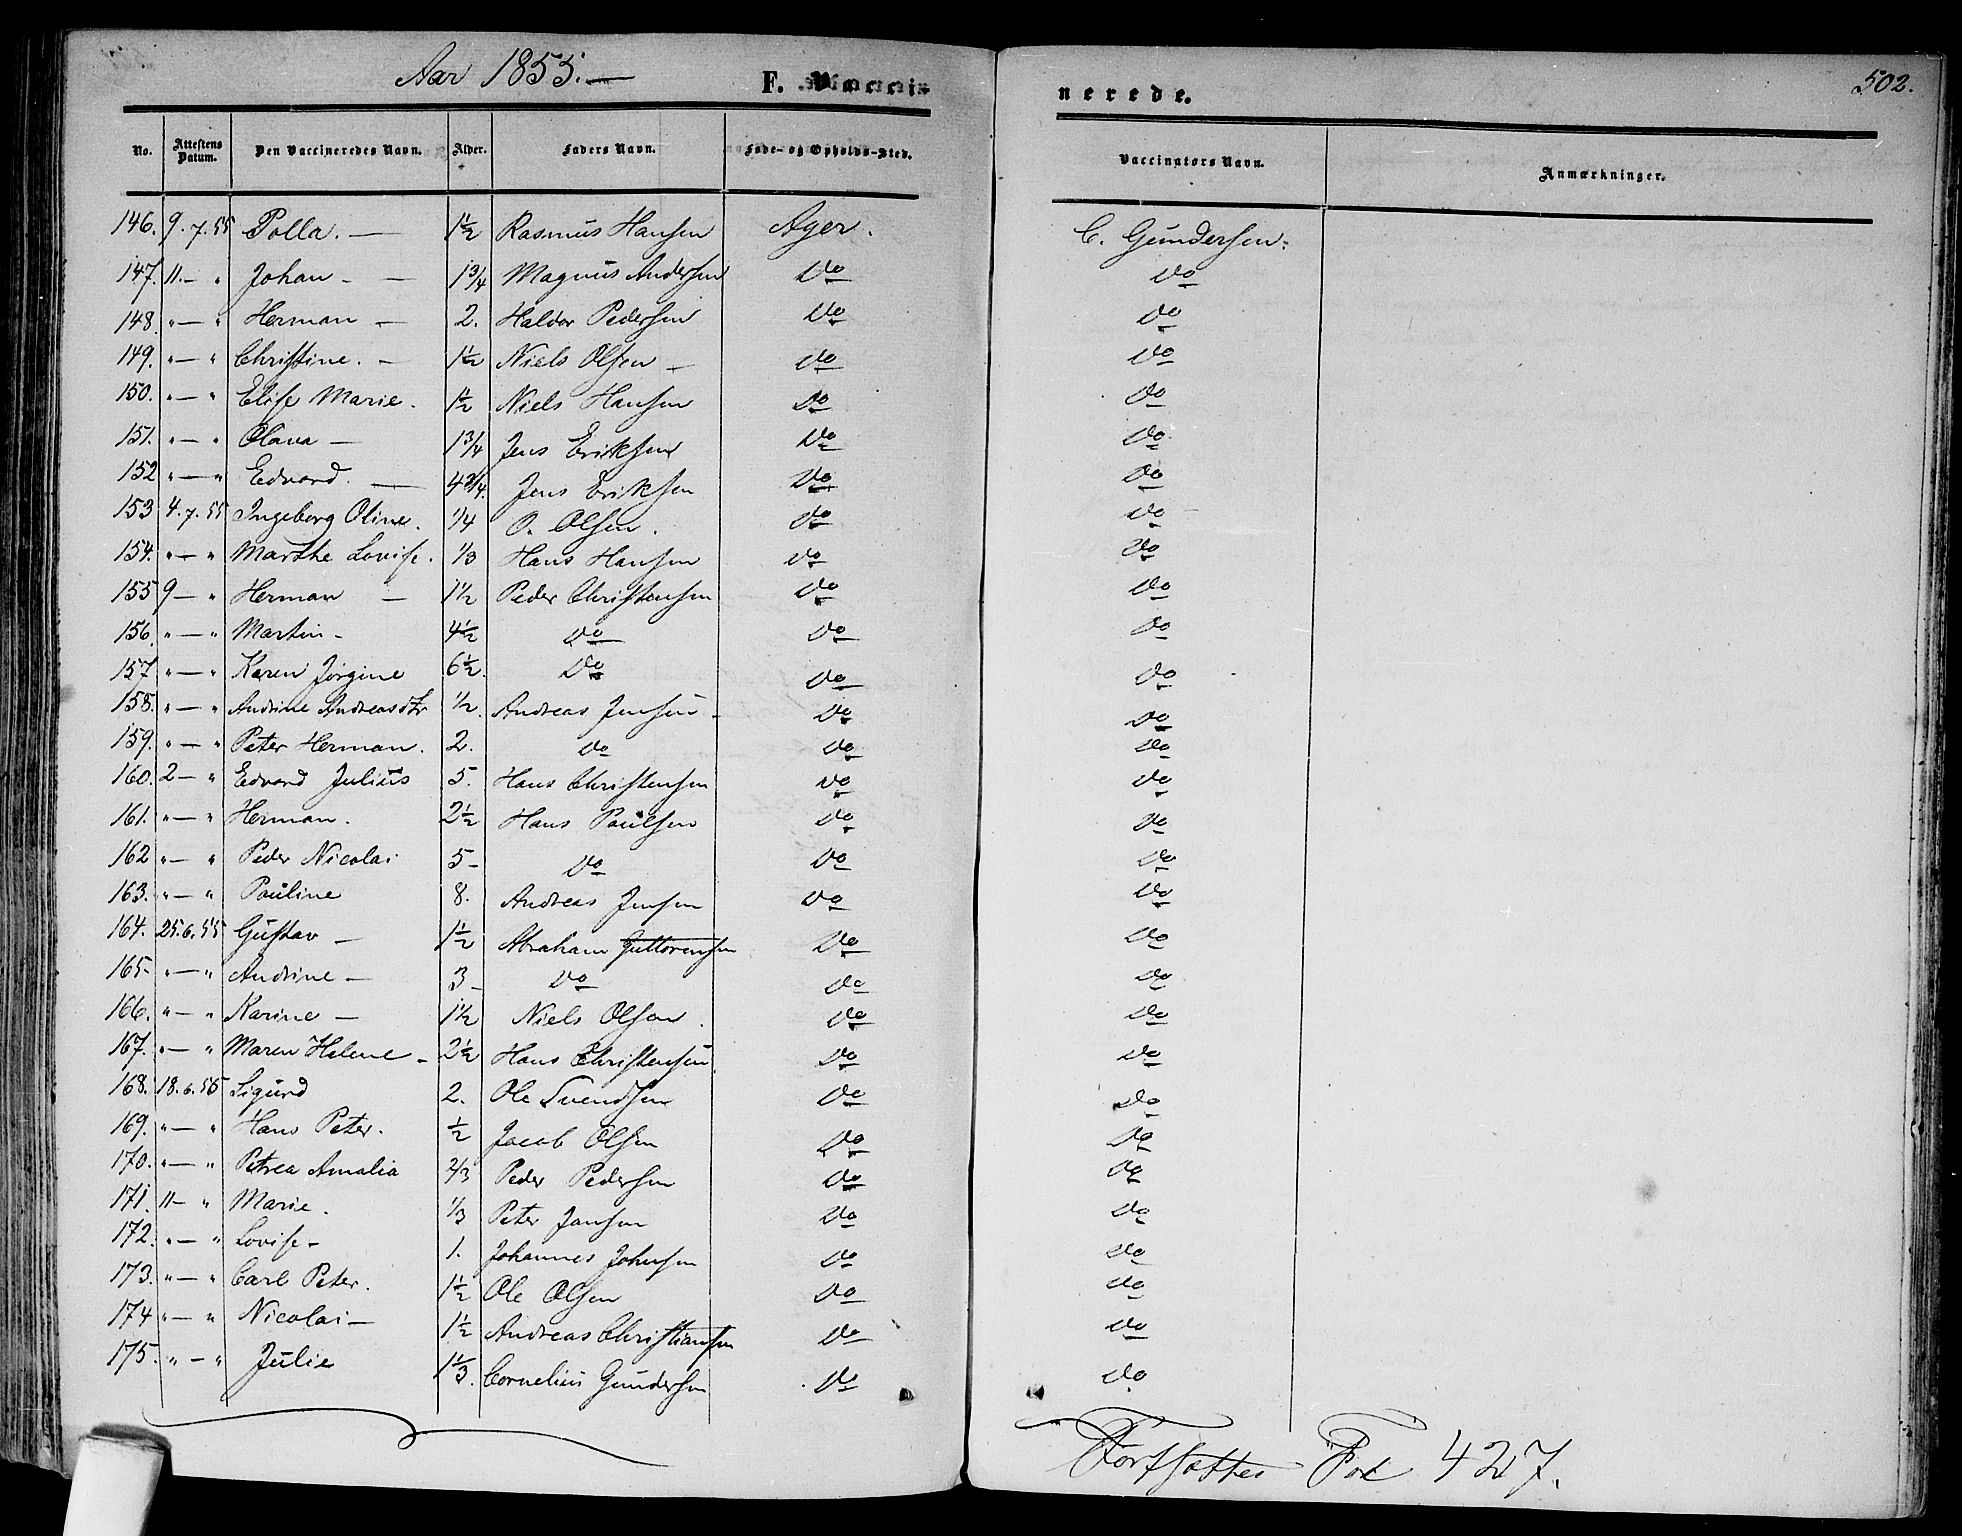 Aar 1855.—
F. Vacci-
nerede.
502.
No. Attestens Datum. Den Vaccineredes Navn. Alder. Faders Navn. Føde- og Opholds-Sted. Vaccinators Navn. Anmærkninger.
146. 9.7.55 Polla. — 1½ Rasmus Hansen Ager. C. Gundersen.
147. 11.— " Johan — — 1¾ Magnus Andersen Do Do
148. "—" Herman — 2. Haldor Pedersen Do Do
149. "—" Christine. — 1½ Niels Olsen — Do Do
150. "—" Elise Marie. 1½ Niels Hansen Do Do
151. "—" Olava — 1¾ Jens Eriksen Do Do
152 "—" Edvard. — 4¾. Jens Eriksen Do Do
153 4.7.55 Ingeborg Oline. ¼ O. Olsen. Do Do
154. "—" Marthe Lovise. ⅓ Hans Hansen Do Do
155 9—" Herman — 1½ Peder Christensen Do Do
156. "—" Martin — 4½ Do Do Do
157. "—" Karen Jørgine 6½. Do Do Do
158. "—" Andrine Andreasdtr ½. Andreas Jensen — Do Do
159. "—" Peter Herman. 2. Do Do Do
160. 2—" Edvard Julius 5. Hans Christensen Do Do
161. "—" Herman. 2½ Hans Paulsen Do Do
162 "—" Peder Nicolai 5— Do Do Do
163. "—" Pauline 8. Andreas Jensen Do Do
164. 25.6.55 Gustav — 1½ Abraham Guttormsen Do Do
165— "—" Andrine — 3— Do Do Do
166. "—" Karine — 1½ Niels Olsen. Do Do
167. "—" Maren Helene — 2½ Hans Christensen Do Do
168. 18.6.55 Sigurd 2. Ole Svendsen Do Do
169. "—" Hans Peter. ½ Jacob Olsen Do Do
170. "—" Petrea Amalia ⅔ Peder Pedersen Do Do
171. 11—" Marie. ⅓ Peter Jansen Do Do
172. "—" Lovise — 1. Johannes Johnsen Do Do
173. "—" Carl Peter. 1½ Ole Olsen Do Do
174 "—" Nicolai — 1½ Andreas Christiansen Do Do
175. "—" Julie 1⅓. Cornelius Gundersen Do Do
Fortsættes Fol 427.